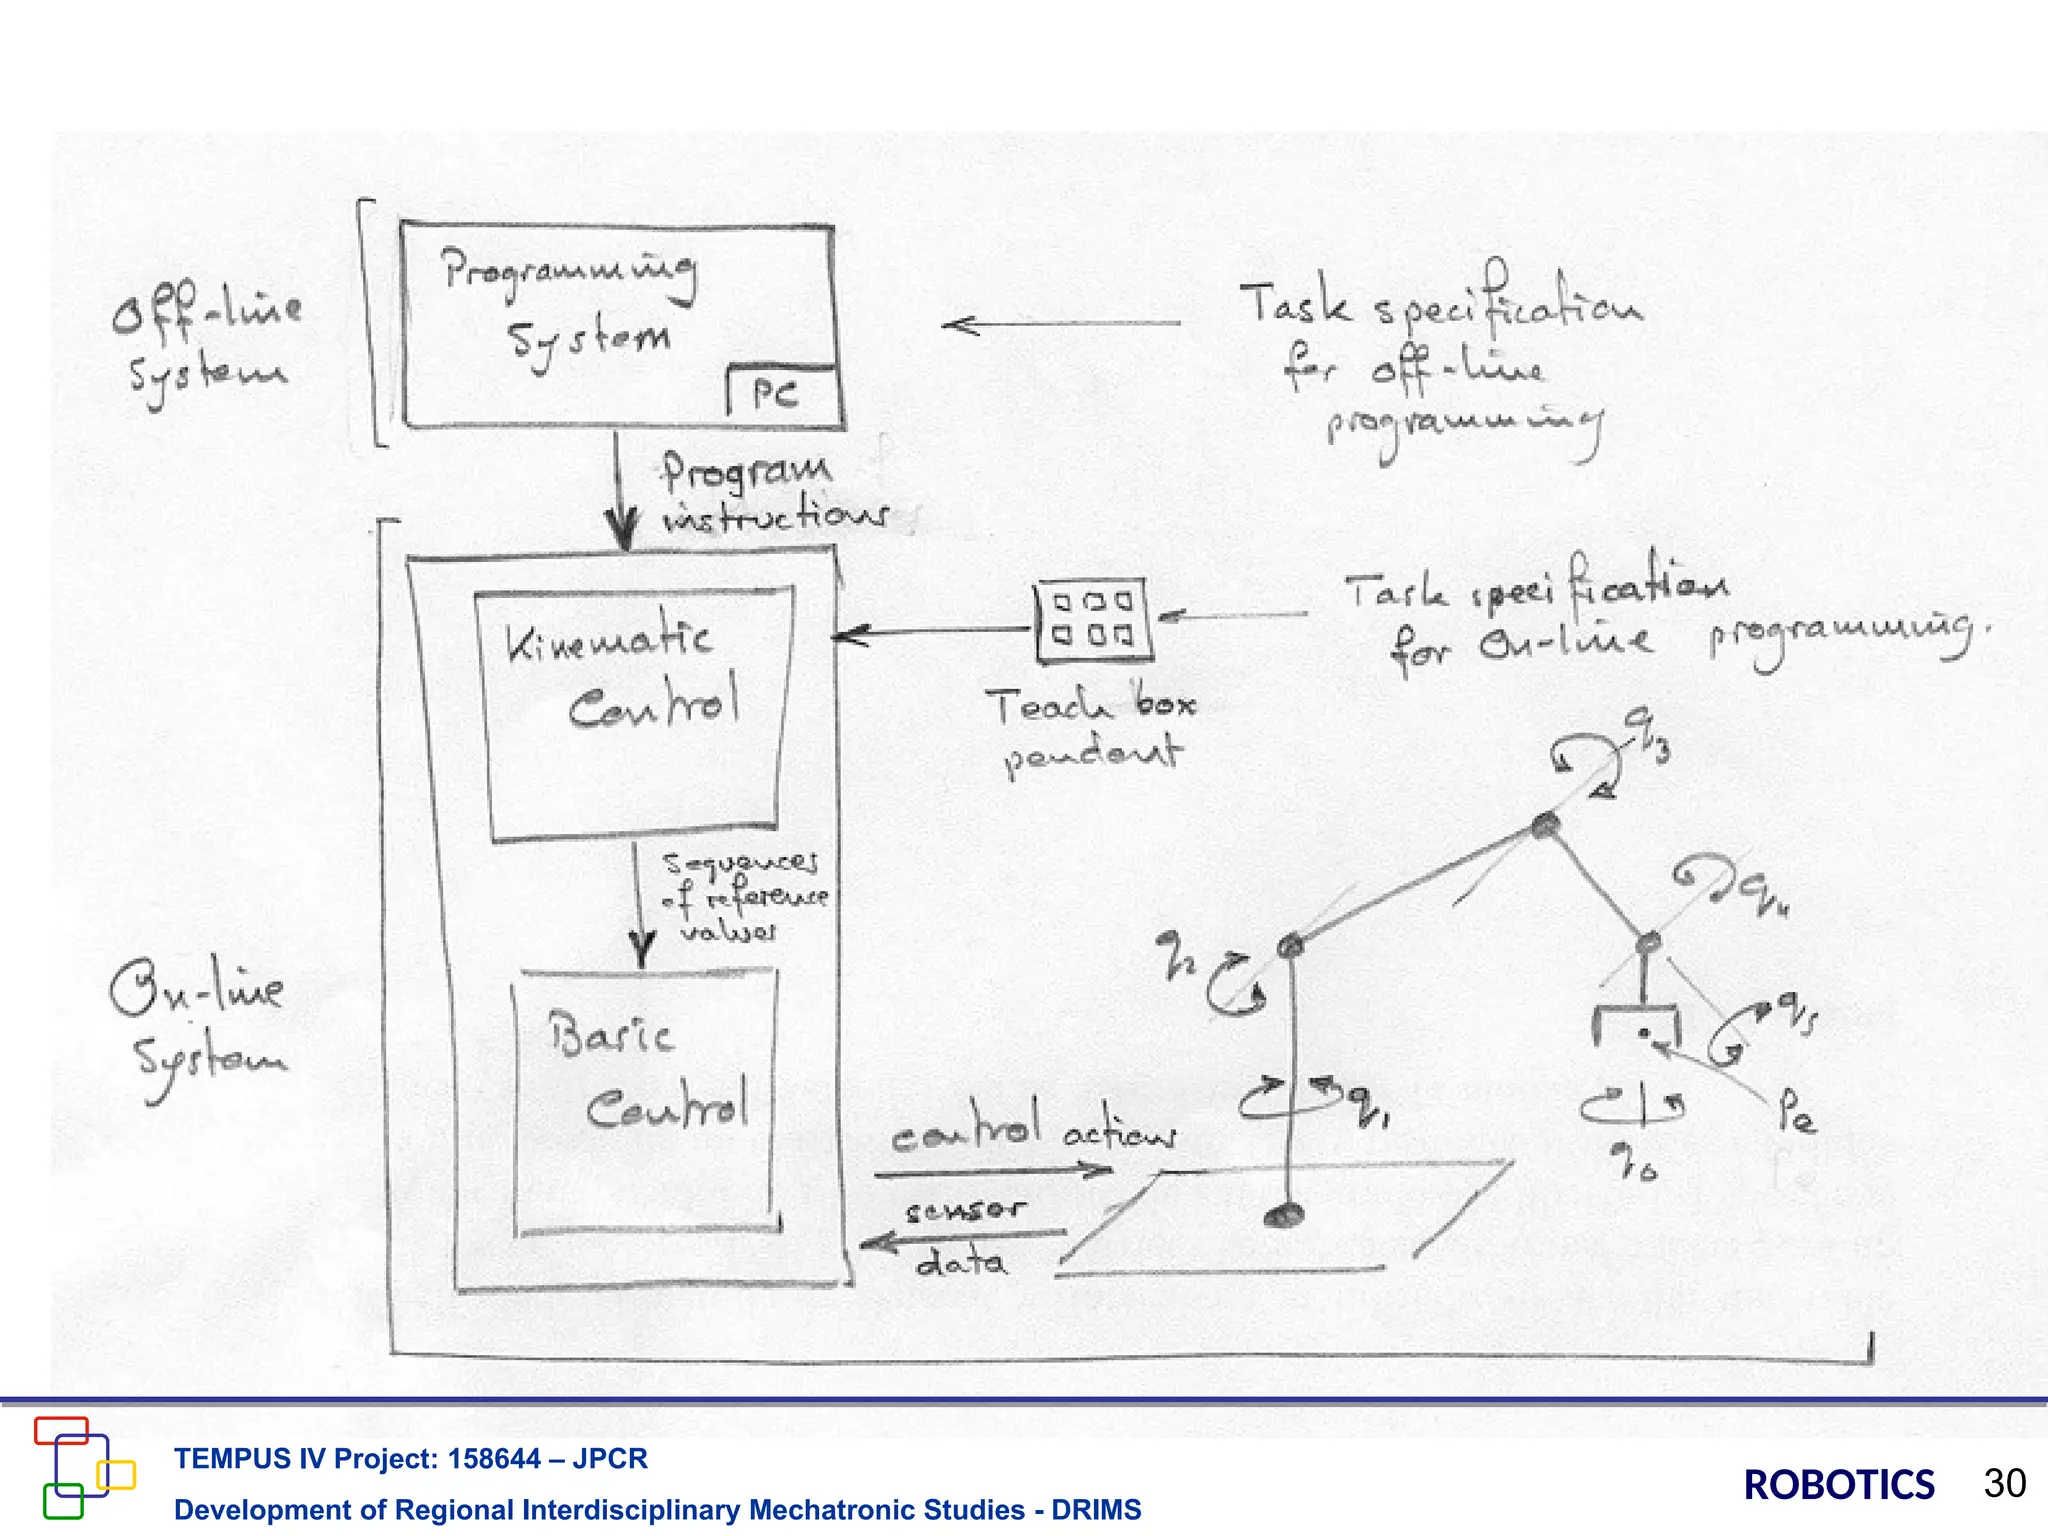 Off-line
System
Programming
System
PC
Task specification
for off-line
programming
Program
instructions
Kinematic
Control
Teach box
pendant
Task specification
for On-line programming.
Sequences
of reference
values
On-line
System
Basic
Control
control actions
sensor
data
q3
q2
q4
q5
q1
q6
Pe
TEMPUS IV Project: 158644 – JPCR
Development of Regional Interdisciplinary Mechatronic Studies - DRIMS
ROBOTICS 30